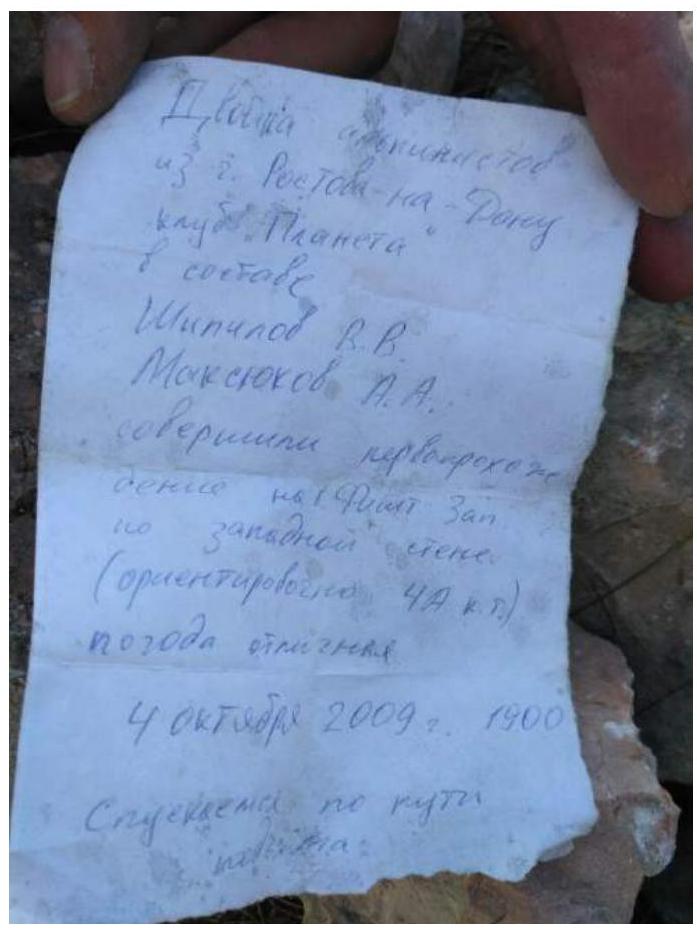 Двойка альпинистов
из г. Ростова-на-Дону
клуб "Планета"
в составе
Шипилов В.В.
Максюков А.А.
совершили первопрохоже
дение на Фишт Зап
по западной стене.
(ориентировочно 4А к.т.)
погода отличная
4 октября 2009 г. 1900
Спускаемся по пути
подъёма.